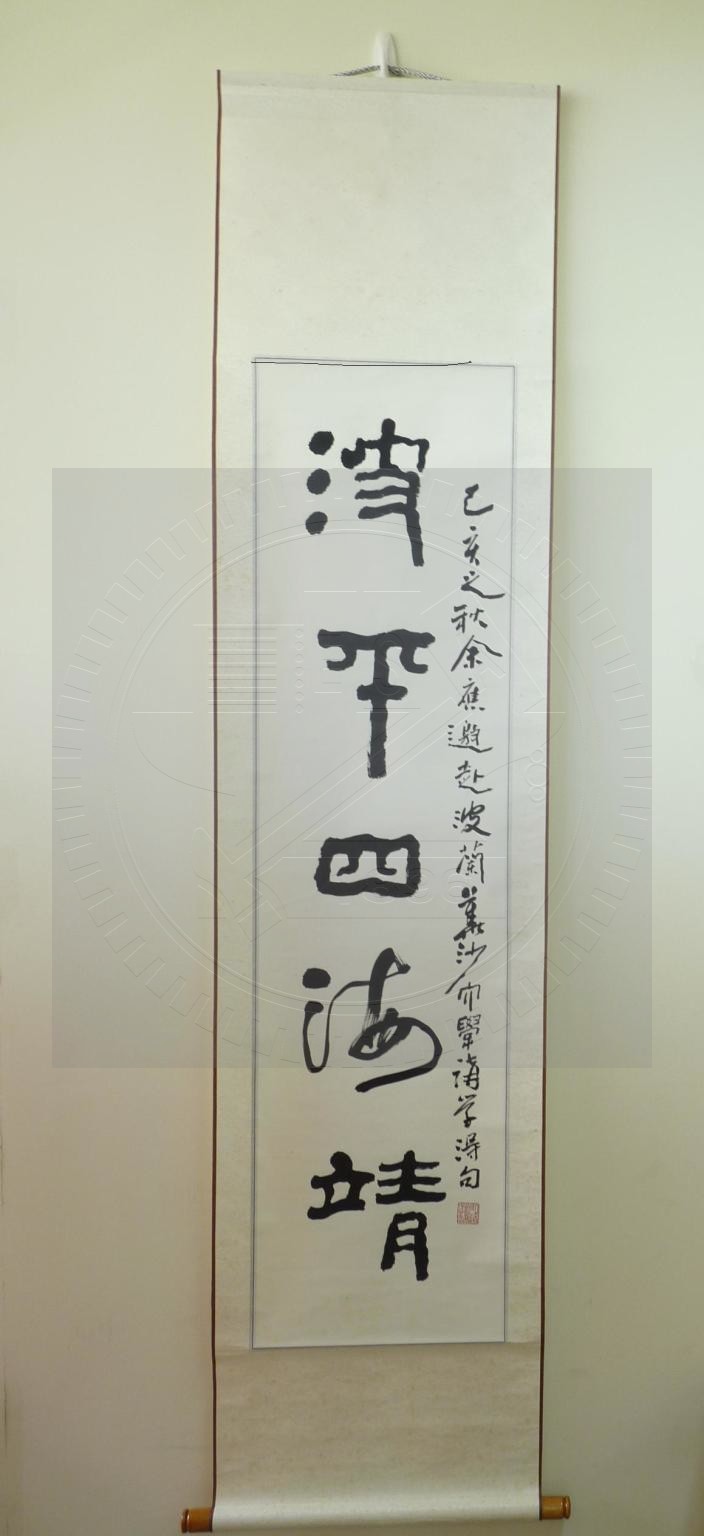 己亥之秋余應邀赴波蘭華沙講学得句
波平四海靖